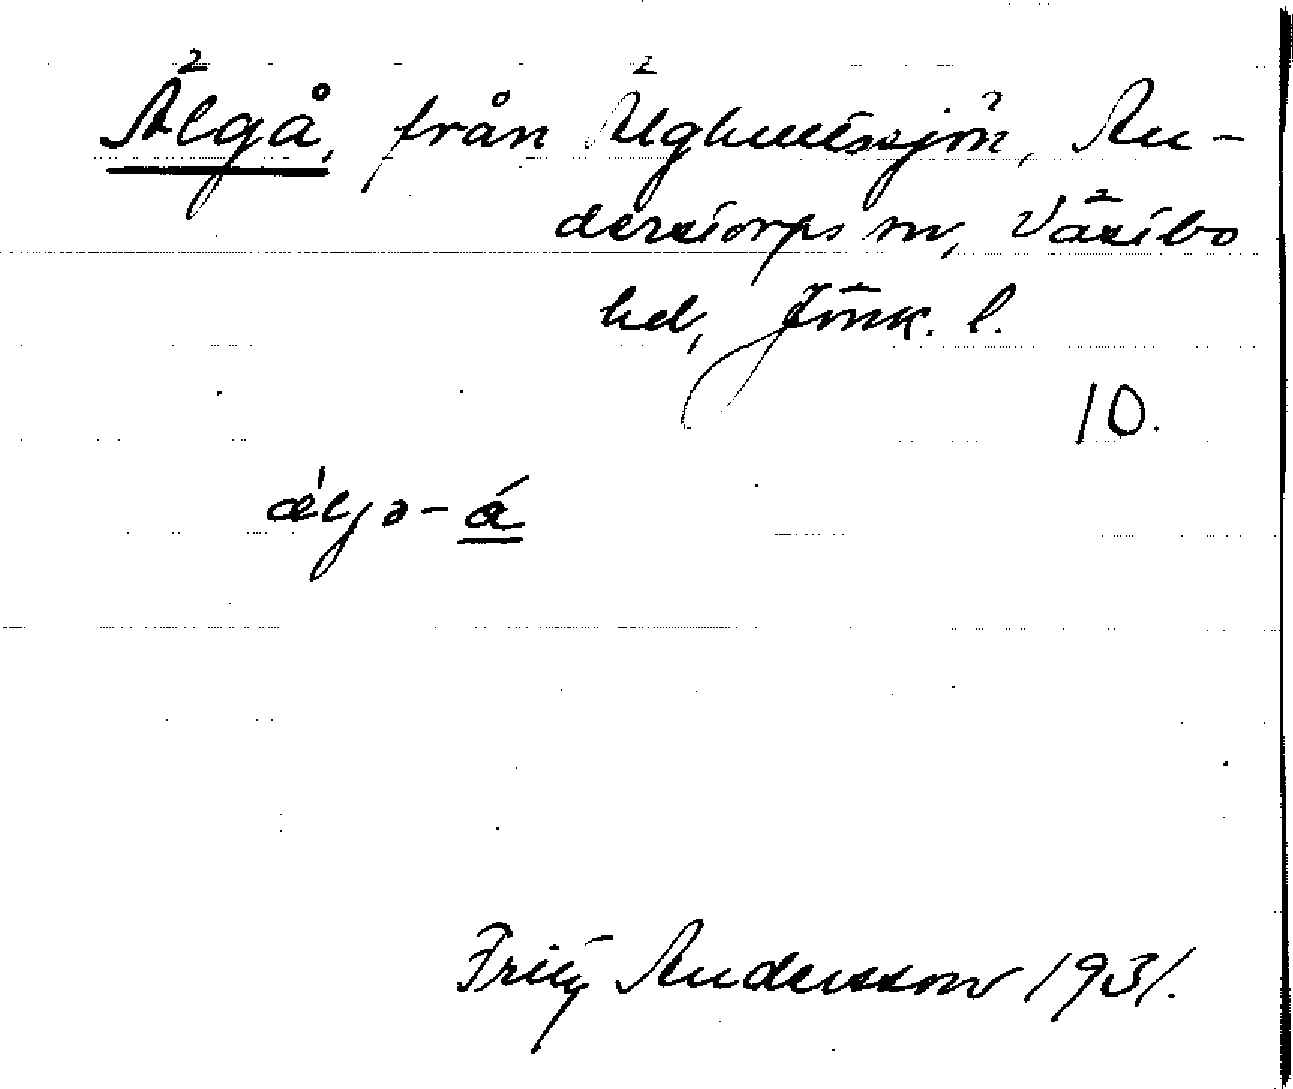 Älgå, från Älghultsjön, An-
derstorps sn, Västbo
hd, Jönk. l.
10.
älja-å
Fritz Andersson 1931.